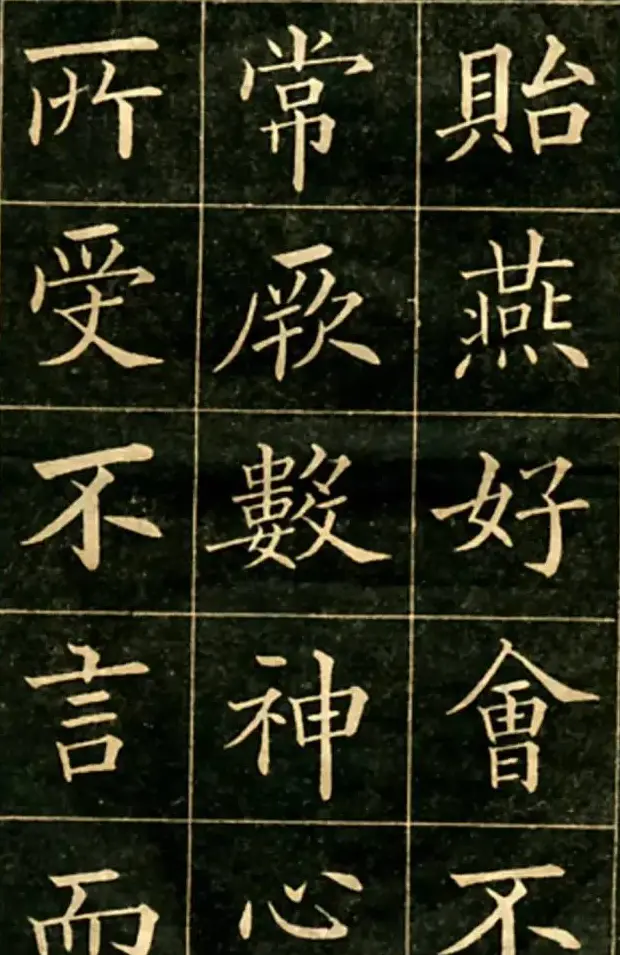 貽燕好會不
常厥數神心
所受不言而